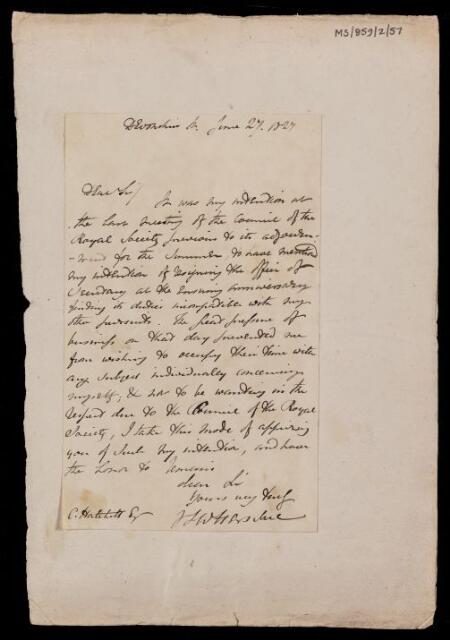 MS/859/2/57
Devonshire St. June 27. 1827
Dear Sir/ It was my intention at
the last meeting of the Council of the
Royal Society previous to its adjourn-
-ment for the Summer to have mentioned
my intention of resigning the office of
Secretary at the ensuing anniversary
finding its duties incompatible with my
other pursuits. The great pressure of
business on that day prevented me
from wishing to occupy their time with
any subject individually concerning
myself; & not to be wanting in the
respect due to the Council of the Royal
Society, I take this mode of apprizing
you of such my intention, and have
the honor to remain
dear Sir
Yours very truly
J F W Herschel
C. Hatchett Esq